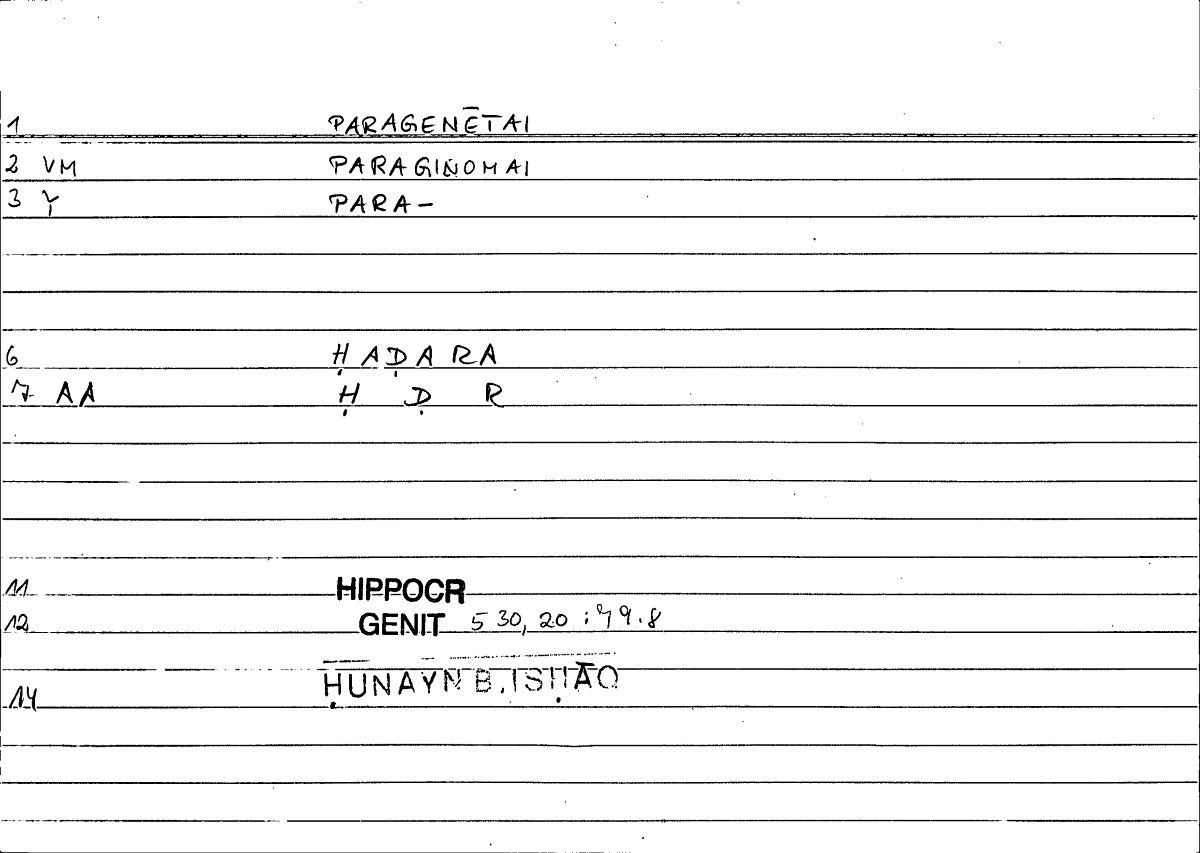 1 PARAGENĒTAI
2 VM PARAGINOMAI
3 Y PARA-
6 ḤAḌARA
7 AA Ḥ Ḍ R
11 HIPPOCR
12 GENIT 5 30, 20 : 79.8
14 ḤUNAYN B. ISḤĀQ